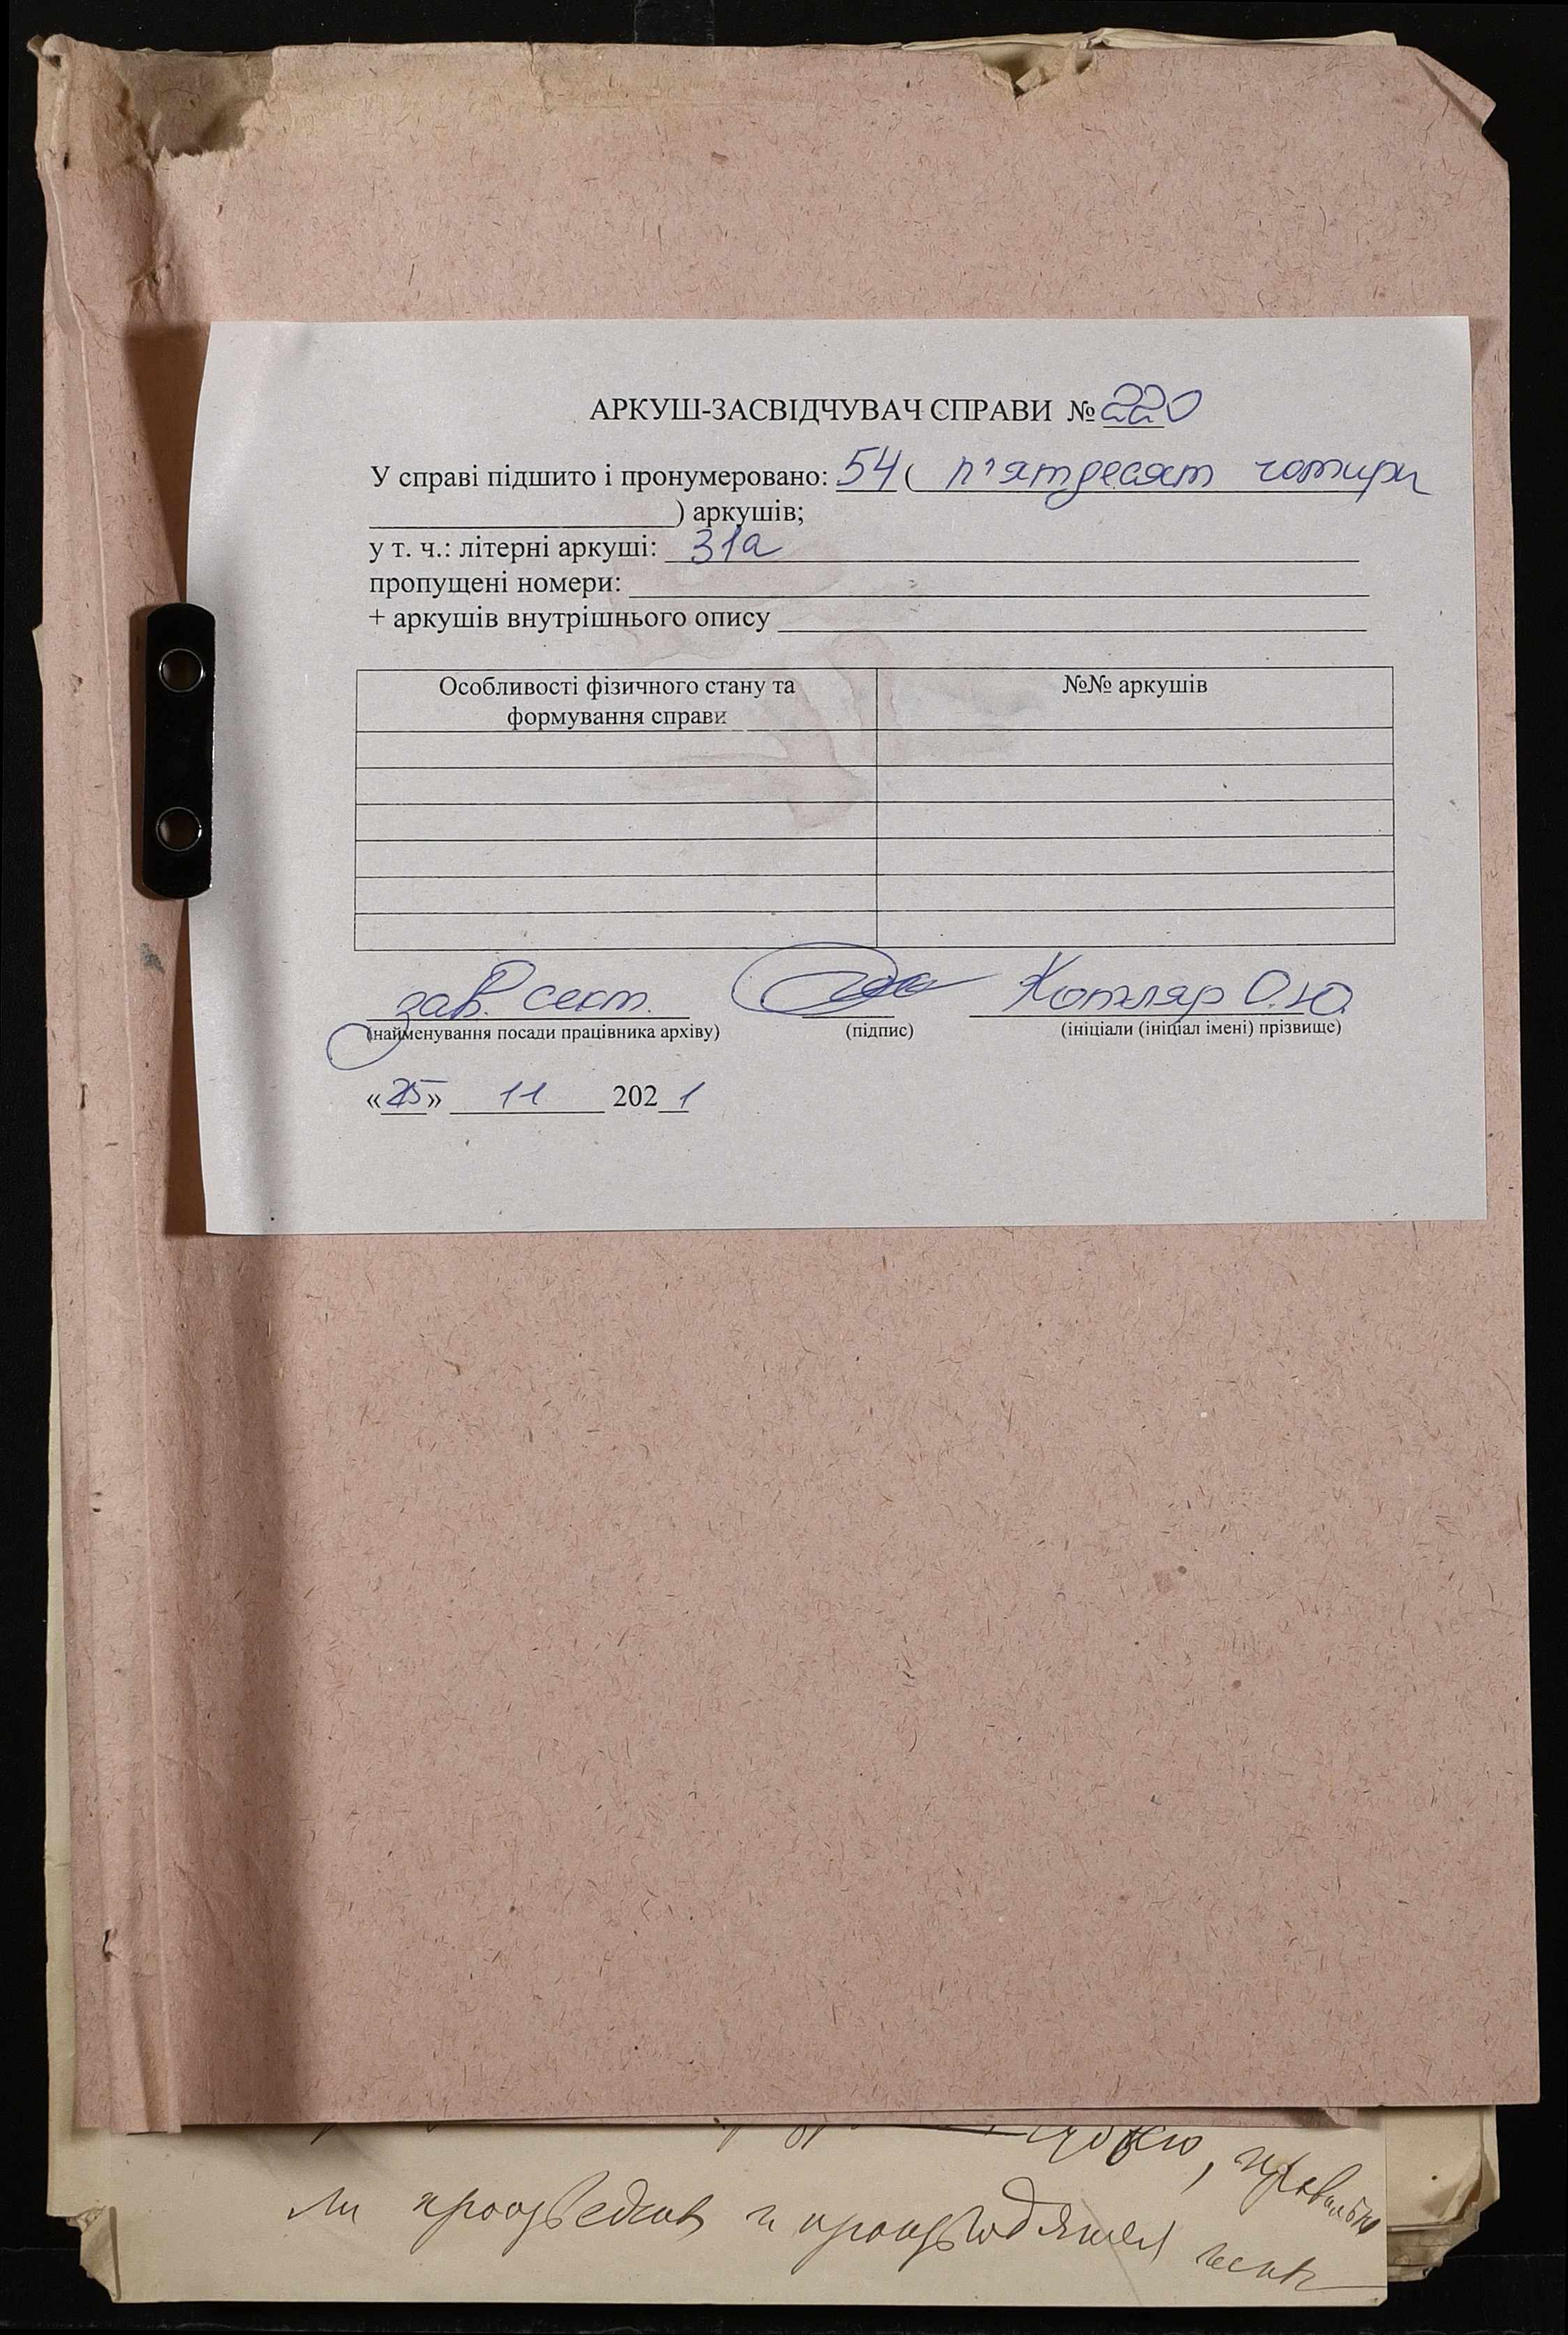 АРКУШ-ЗАСВІДЧУВАЧ СПРАВИ № 220
У справі підшито і пронумеровано: 54 ( п'ятдесят чотири
) аркушів;
у т. ч.: літерні аркуші: 31а
пропущені номери:
+ аркушів внутрішнього опису
Особливості фізичного стану та формування справи
№№ аркушів
зав. сект.
Котляр О.Ю.
(найменування посади працівника архіву)
(підпис)
(ініціали (ініціал імені) прізвище)
«25» 11 2021
, правильно
ли и